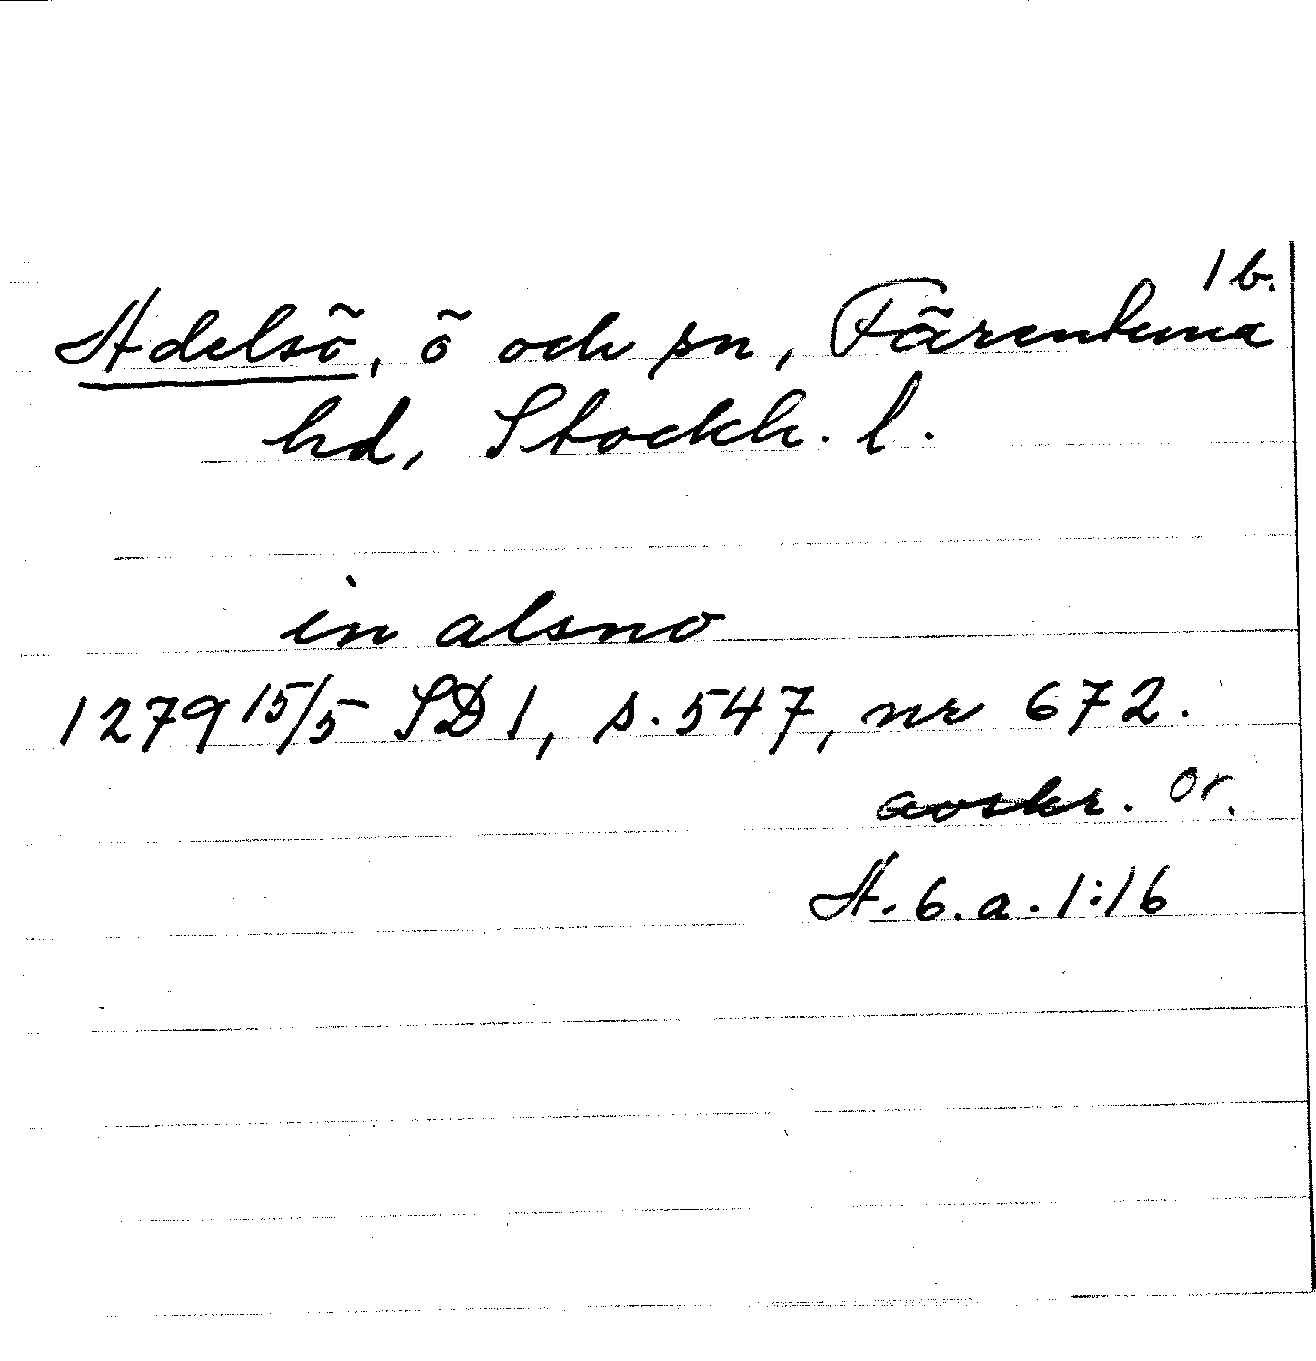 1 b.
Adelsö, ö och sn, Färentuna
hd, Stockh. l.
in alsno
1279 15/5 SD 1, s. 547, nr 672.
avskr. Or.
A. 6. a. 1:16